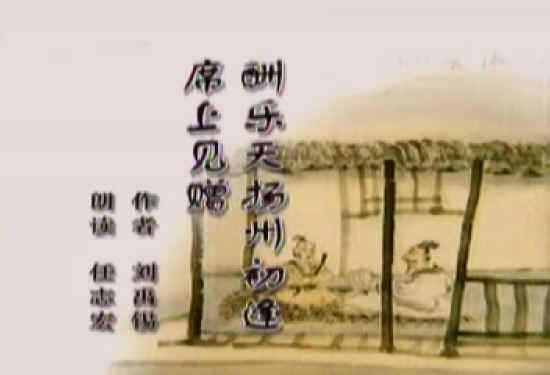 酬乐天扬州初逢
席上见赠
作者 刘禹锡
朗读 任志宏